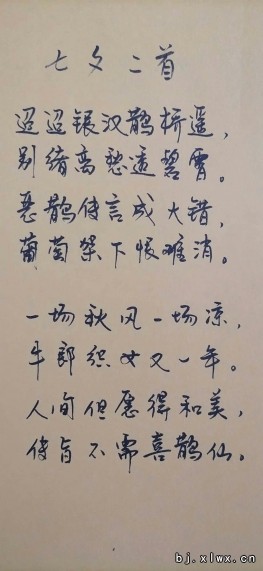 七夕二首
迢迢银汉鹊桥遥，
别绪离愁透碧霄。
恶鹊传言成大错，
葡萄架下恨难消。
一场秋风一场凉，
牛郎织女又一年。
人间但愿得和美，
传旨不需喜鹊仙。
bj.xlwx.cn